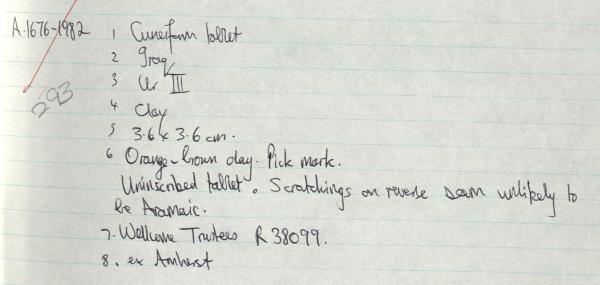 A.1676-1982 1 Cuneiform tablet
2 Iraq
293
3 Ur III
4 Clay
5 3.6 x 3.6 cm.
6 Orange-brown clay. Pick mark.
Uninscribed tablet. Scratchings on reverse seem unlikely to
be Aramaic.
7. Wellcome Trustees R 38099.
8. ex Amherst